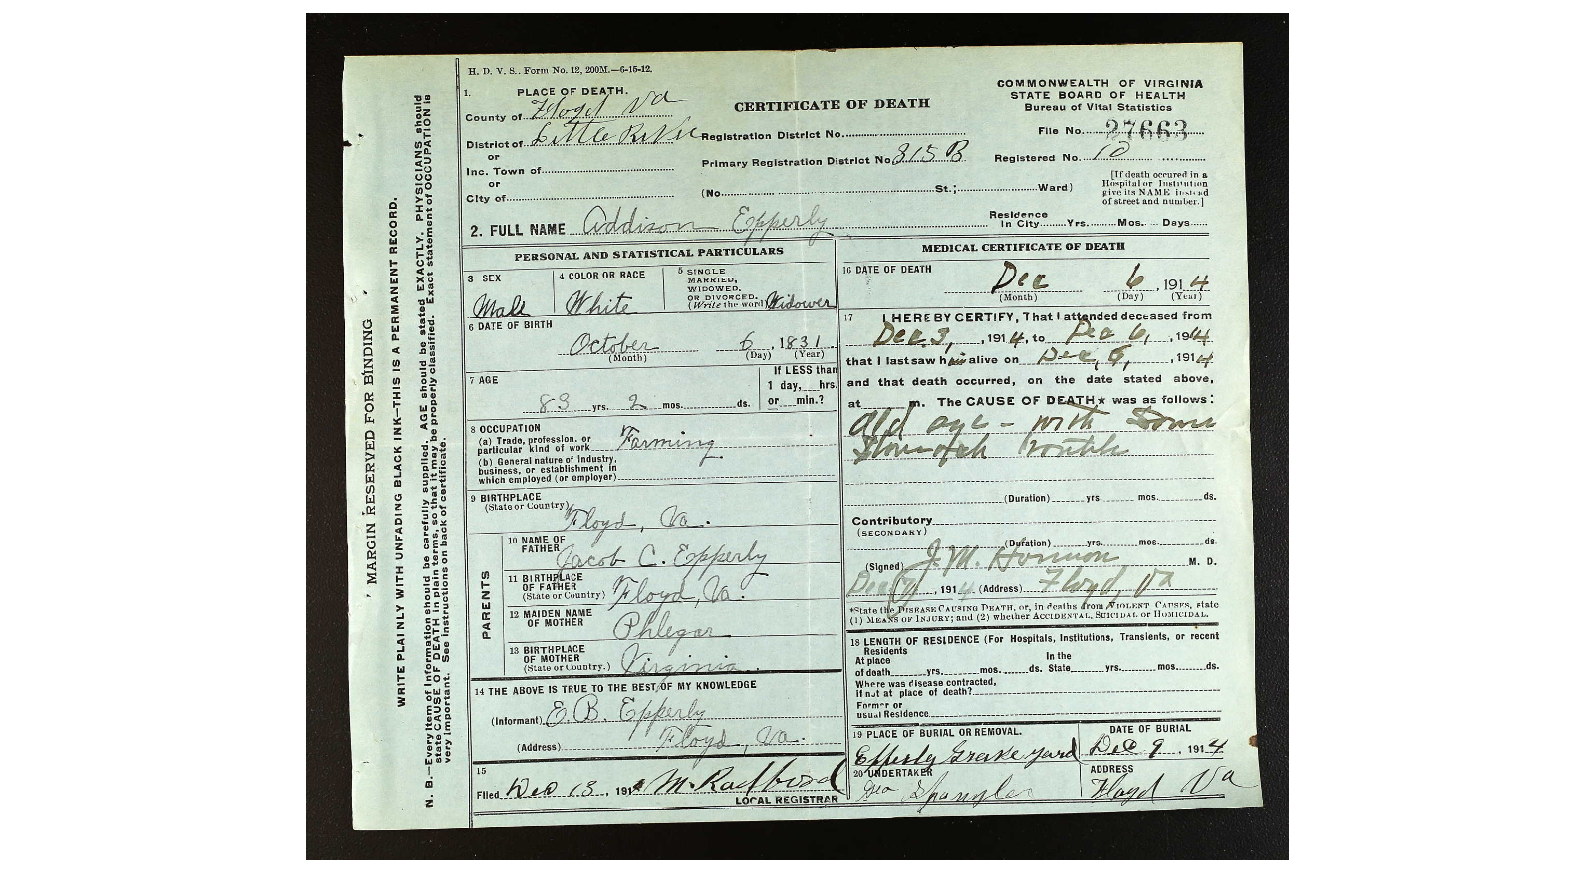 H. D. V. S.. Form No. 12, 200M.—6-15-12.
1. PLACE OF DEATH.
County of Floyd Va
District of Little River
or
Inc. Town of
or
City of
CERTIFICATE OF DEATH
Registration District No.
Primary Registration District No 315 B
(No. St.; Ward)
COMMONWEALTH OF VIRGINIA
STATE BOARD OF HEALTH
Bureau of Vital Statistics
File No. 27663
Registered No. 10
[If death occured in a
Hospital or Institution
give its NAME instead
of street and number.]
2. FULL NAME Addison Epperly
Residence
In City Yrs. Mos. Days
PERSONAL AND STATISTICAL PARTICULARS
3 SEX
Male
4 COLOR OR RACE
White
5 SINGLE
MARRIED,
WIDOWED.
OR DIVORCED.
(Write the word) Widower
6 DATE OF BIRTH
October 6, 1831.
(Month) (Day) (Year)
7 AGE
83 yrs. 2 mos. ds.
If LESS than
1 day, hrs.
or min.?
8 OCCUPATION
(a) Trade, profession, or
particular kind of work Farming
(b) General nature of Industry,
business, or establishment in
which employed (or employer)
9 BIRTHPLACE
(State or Country)
Floyd, Va.
PARENTS
10 NAME OF
FATHER Jacob C. Epperly
11 BIRTHPLACE
OF FATHER
(State or Country) Floyd, Va.
12 MAIDEN NAME
OF MOTHER
Phlegar
13 BIRTHPLACE
OF MOTHER
(State or Country.) Virginia.
14 THE ABOVE IS TRUE TO THE BEST OF MY KNOWLEDGE
(Informant) E. B. Epperly
(Address) Floyd, Va.
15
Filed Dec 13, 1914 M. Radford
LOCAL REGISTRAR
MEDICAL CERTIFICATE OF DEATH
16 DATE OF DEATH
Dec 6, 1914
(Month) (Day) (Year)
17 I HEREBY CERTIFY, That I attended deceased from
Dec. 3, , 1914, to Dec 6, , 1914
that I last saw him alive on Dec, 6, , 1914
and that death occurred, on the date stated above,
at m. The CAUSE OF DEATH* was as follows:
Old age – with some
Stomach trouble
(Duration) yrs mos. ds.
Contributory
(SECONDARY)
(Duration) yrs. mos. ds.
(Signed) J. M. M. D.
Dec 7, 1914 (Address) Floyd, Va
*State the DISEASE CAUSING DEATH, or, in deaths from VIOLENT CAUSES, state
(1) MEANS OF INJURY; and (2) whether ACCIDENTAL, SUICIDAL or HOMICIDAL.
18 LENGTH OF RESIDENCE (For Hospitals, Institutions, Transients, or recent
Residents
At place In the
of death yrs. mos. ds. State yrs. mos. ds.
Where was disease contracted,
if not at place of death?
Former or
usual Residence
19 PLACE OF BURIAL OR REMOVAL.
Epperly Grave yard
DATE OF BURIAL
Dec 9, 1914
20 UNDERTAKER
Geo Spangler
ADDRESS
Floyd Va
MARGIN RESERVED FOR BINDING
WRITE PLAINLY WITH UNFADING BLACK INK—THIS IS A PERMANENT RECORD.
N. B.—Every item of Information should be carefully supplied. AGE should be stated EXACTLY. PHYSICIANS should
state CAUSE OF DEATH in plain terms, so that it may be properly classified. Exact statement of OCCUPATION is
very important. See instructions on back of certificate.